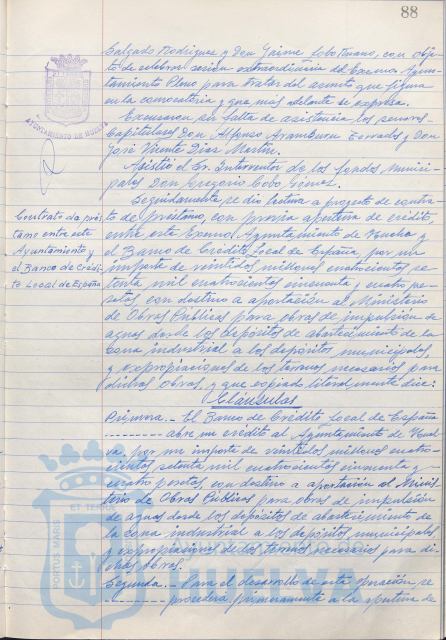 88
Salgado Rodriguez y Don Jaime Lobo Ruano, con obje-
to de celebrar sesión extraordinaria del Excmo. Ayun-
tamiento Pleno para tratar del asunto que figura
en la convocatoria y que más adelante se expresa.
Excusaron su falta de asistencia los señores
Capitulares Don Alfonso Aramburu Terrades y Don
José Vicente Diaz Martin.
Asistió el Sr. Interventor de los fondos munici-
pales Don Gregorio Cobo Gómez.
Seguidamente se dio lectura a proyecto de contra-
to de préstamo, con previa apertura de crédito,
entre este Excmo. Ayuntamiento de Huelva y
el Banco de Crédito Local de España, por un
importe de veintidos millones cuatrocientos se-
tenta mil cuatrocientos cincuenta y cuatro pe-
setas, con destino a aportación al Ministerio
de Obras Públicas para obras de impulsión de
aguas desde los depósitos de abastecimiento de la
zona industrial a los depósitos municipales,
y expropiaciones de los terrenos necesarios para
dichas obras, y que copiado literalmente dice:
Cláusulas
Primera.- El Banco de Crédito Local de España
abre un crédito al Ayuntamiento de Huel-
va, por un importe de veintidos millones cuatro-
cientos setenta mil cuatrocientos cincuenta y
cuatro pesetas, con destino a aportación al Minis-
terio de Obras Públicas para obras de impulsión
de aguas desde los depósitos de abastecimiento de
la zona industrial a los depósitos municipales
y expropiaciones de los terrenos necesarios para di-
chas obras.
Segunda.- Para el desarrollo de esta operación se
procederá primeramente a la apertura de
AYUNTAMIENTO DE HUELVA
Contrato de prés-
tamo entre este
Ayuntamiento y
el Banco de Crédi-
to Local de España
PORTUS MARIS ET TERRAE
HUELVA